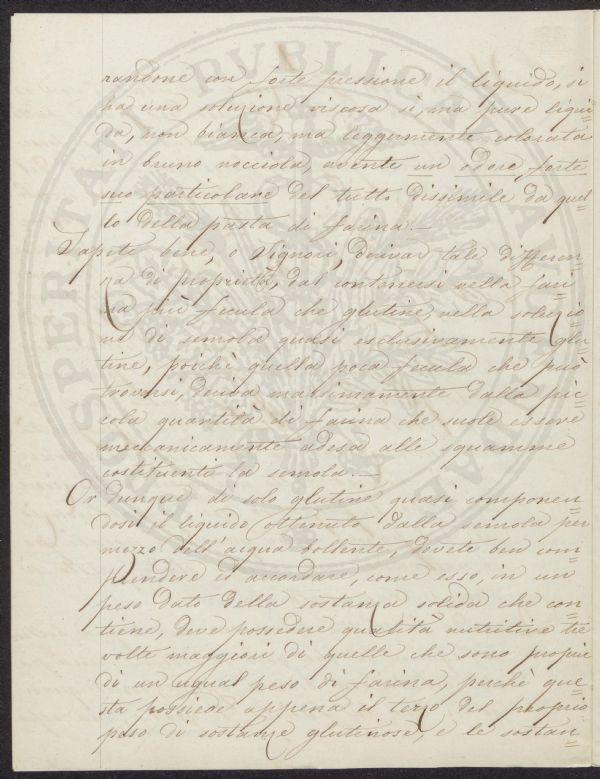 randone con forte pressione il liquido, si
ha una soluzione viscosa sì, ma pure liqui=
da, non bianca, ma leggermente colorata
in bruno nocciola, avente un odore forte
suo particolare del tutto dissimile da quel=
lo della pasta di farina.—
Sapete bene, o Signori, derivar tale differen=
za di proprietà, dal contenersi nella fari=
na più fecula che glutine, nella soluzio=
ne di semola quasi esclusivamente glu=
tine, poichè quella poca fecula che può
trovarsi, deriva massimamente dalla pic=
cola quantità di farina che suole essere
meccanicamente adesa alle squamme
costituenti la semola.—
Or dunque di solo glutine quasi componen=
dosi il liquido ottenuto dalla semola per
mezzo dell'acqua bollente, dovete ben com=
prendere ed accordare, come esso, in un
peso dato della sostanza solida che con=
tiene, deve possedere qualità nutritive tre
volte maggiori di quelle che sono proprie
di un ugual peso di farina, perchè que=
sta possiede appena il terzo del proprio
peso di sostanze glutinose, e le sostan=
PROSPERITATI PUBLICAE AUGENDAE